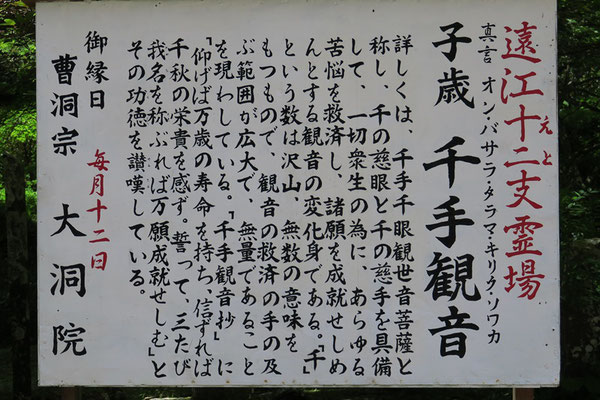 遠江十二支霊場
えと
真言 オン・バサラ・タラマ・キリク・ソワカ
子歳 千手観音
詳しくは、千手千眼観世音菩薩と
称し、千の慈眼と千の慈手を具備
して、一切衆生の為に、あらゆる
苦悩を救済し、諸願を成就せしめ
んとする観音の変化身である。「千」
という数は沢山、無数の意味を
もつもので、観音の救済の手の及
ぶ範囲が広大で、無量であること
を現わしている。「千手観音抄」に
「仰げば万歳の寿命を持ち、信ずれば
千秋の栄貴を感ず。誓って、三たび
我名を称ぶれば万願成就せしむ」と
その功徳を讃嘆している。
御縁日 毎月十二日
曹洞宗 大洞院